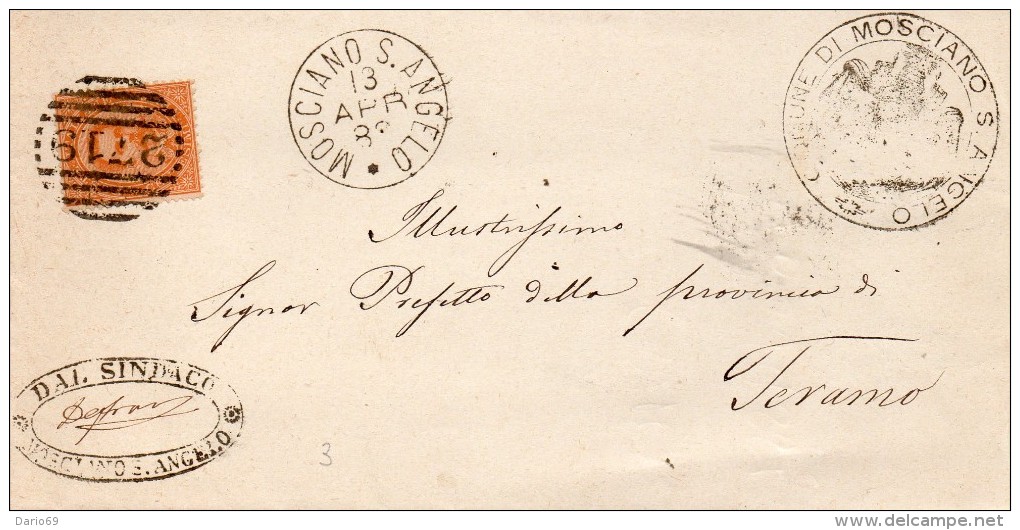 MOSCIANO S. ANGELO
13
APR
COMUNE DI MOSCIANO S. ANGELO
2719
Illustrissimo
Signor Prefetto della provincia di
Teramo
DAL SINDACO
MOSCIANO S. ANGELO
3
Dario69
delcampe.net